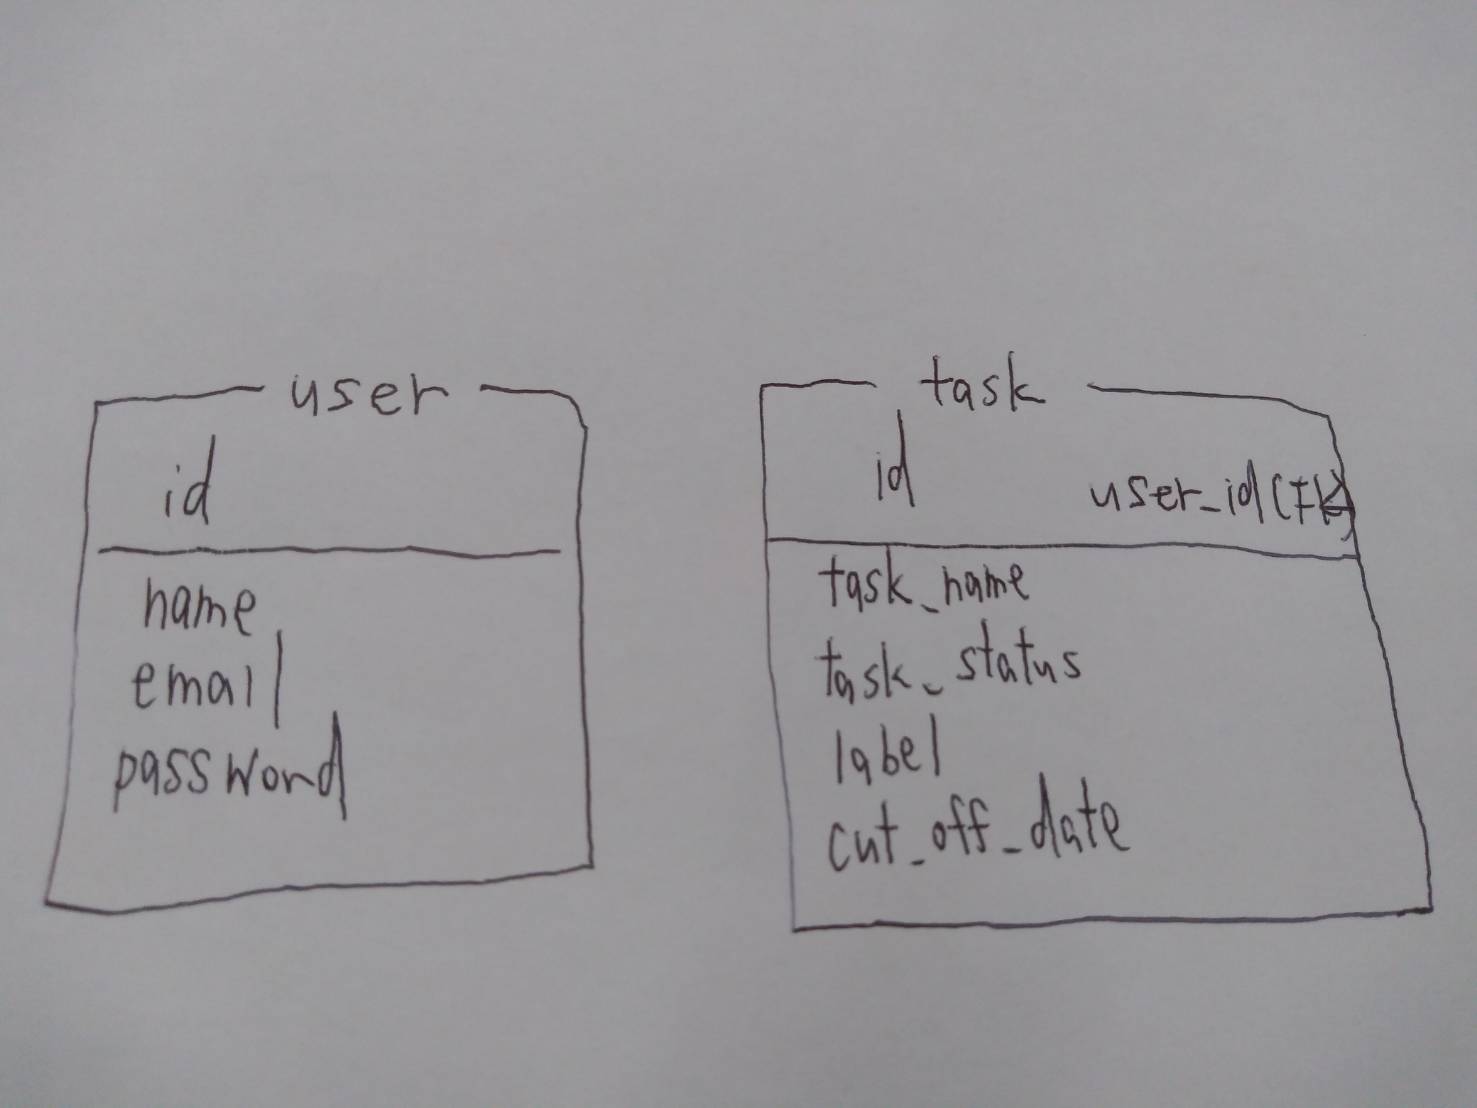 user
id
name
email
password
task
id user_id(FK)
task_name
task_status
label
cut_off_date